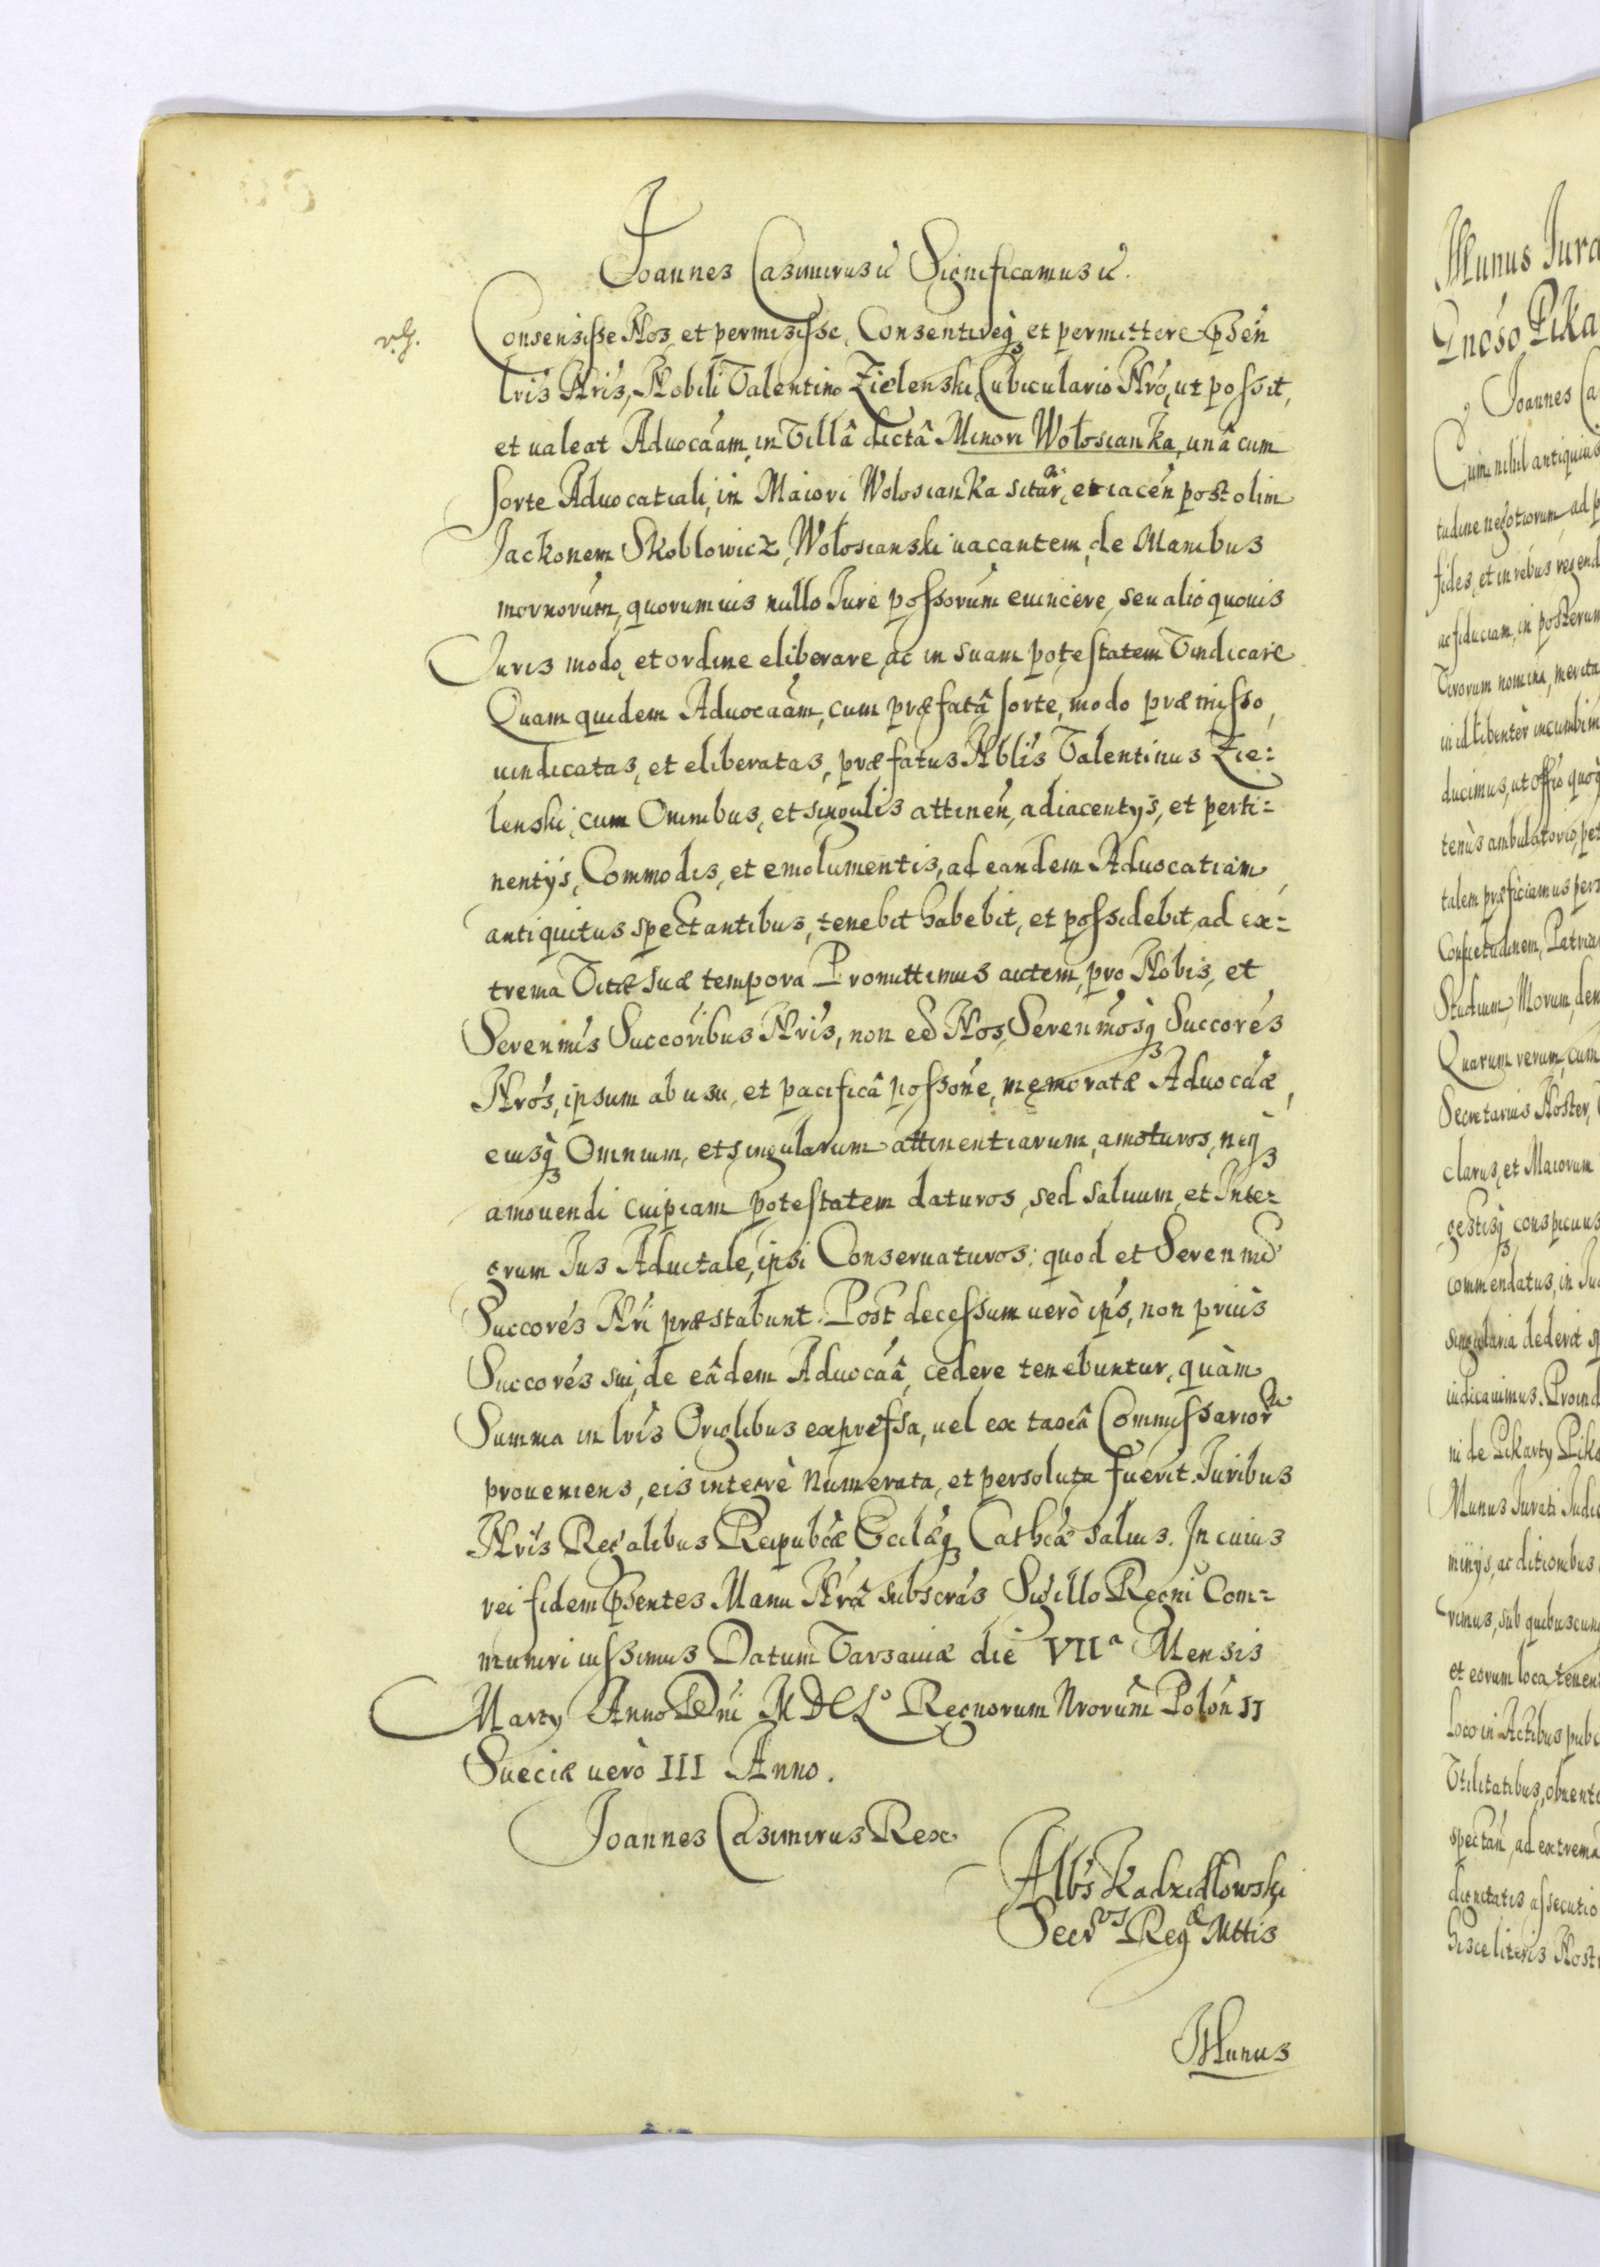 Joannes Casimirus etc Significamus etc.
rh.
Consensisse Nos, et permisisse, Consentireq3 et permittere psen
lris Nris, Nobili Valentino Zielenski Cubiculario Nro, ut possit,
et ualeat Aduocaam, in Villâ dictâ Minori Wołosianka, unâ cum
sorte Aduocatiali, in Maiori Wołosianka sitar, et iacen post olim
Jackonem Skoblowicz, Wołosianski uacantem, de Manibus
mornorum, quorumuis nullo Jure possorum euincere, seu alio quouis
Juris modo, et ordine eliberare, ac in suam potestatem Vindicare
Quam quidem Aduocaam, cum præfatâ sorte, modo præmisso,
uindicatas, et eliberatas, præfatus Nblis Valentinus Zie:
lenski, cum Omnibus, et singulis attinen, adiacentijs, et perti:
nentijs, Commodis, et emolumentis, ad eandem Aduocatiam
antiquitus spectantibus, tenebit habebit, et possidebit, ad ex:
trema Vitæ suæ tempora Promittimus autem, pro Nobis, et
Serenmis Succoribus Nris, non eê Nos, Serenmosq3 Succores
Nros, ipsum ab usu, et pacificâ possone, memoratæ Aduocaæ,
eiusq3 Omnium, et singularum attinentiarum, amoturos, neq3
amouendi cuipiam potestatem daturos, sed saluum, et Inte:
grum Jus Aduitale, ipsi Conseruaturos: quod et Serenmi
Succores Nri præstabunt. Post decessum uerò ips, non priùs
Succores sui, de eâdem Aduocaâ, cedere tenebuntur, quàm
Summa in lris Origlibus expressa, uel ex taxâ Commissarior
proueniens, eis integrè numerata, et persoluta fuerit. Juribus
Nris Regalibus Reipubcæ Eccliæq3 Cathcæ saluis. In cuius
rei fidem psentes Manu Nrâ subscras Sigillo Regni Com:
muniri iussimus Datum Varsauiæ die VIIa Mensis
Martij Anno Dni M D C Lo Regnorum Nrorum Polon II
Sueciæ uerò III Anno.
Joannes Casimirus Rex
Albs Kadzidłowski
Secrus Regæ Mttis
Munus
Munus Jura
Gnoso Pika
Joannes Ca
Cum nihil antiquius
tudine negotiorum ad p
fides, et in rebus gerend
ac fiduciam, in posterum
Virorum nomina, merita
in id libenter incumbim
ducimus, ut offio quoq
tenus ambulatorio, pet
talem præficiamus pers
Consuetudinem, Patria
Studium, Morum, den
Quarum rerum, cum
Secretarius Noster,
clarus, et Maiorum
gestisq3 conspicuus
commendatus, in Ju
singularia dederit sp
iudicauimus. Proind
ni de Pikarty Pika
Munus Jurati Judic
minijs, ac ditionibus
rimus, sub quibuscun
et eorum loca tenen
loco in Actibus publ
Vtilitatibus, obuent
spectan, ad extrema
dignitatis assecutio
hisce literis Nost